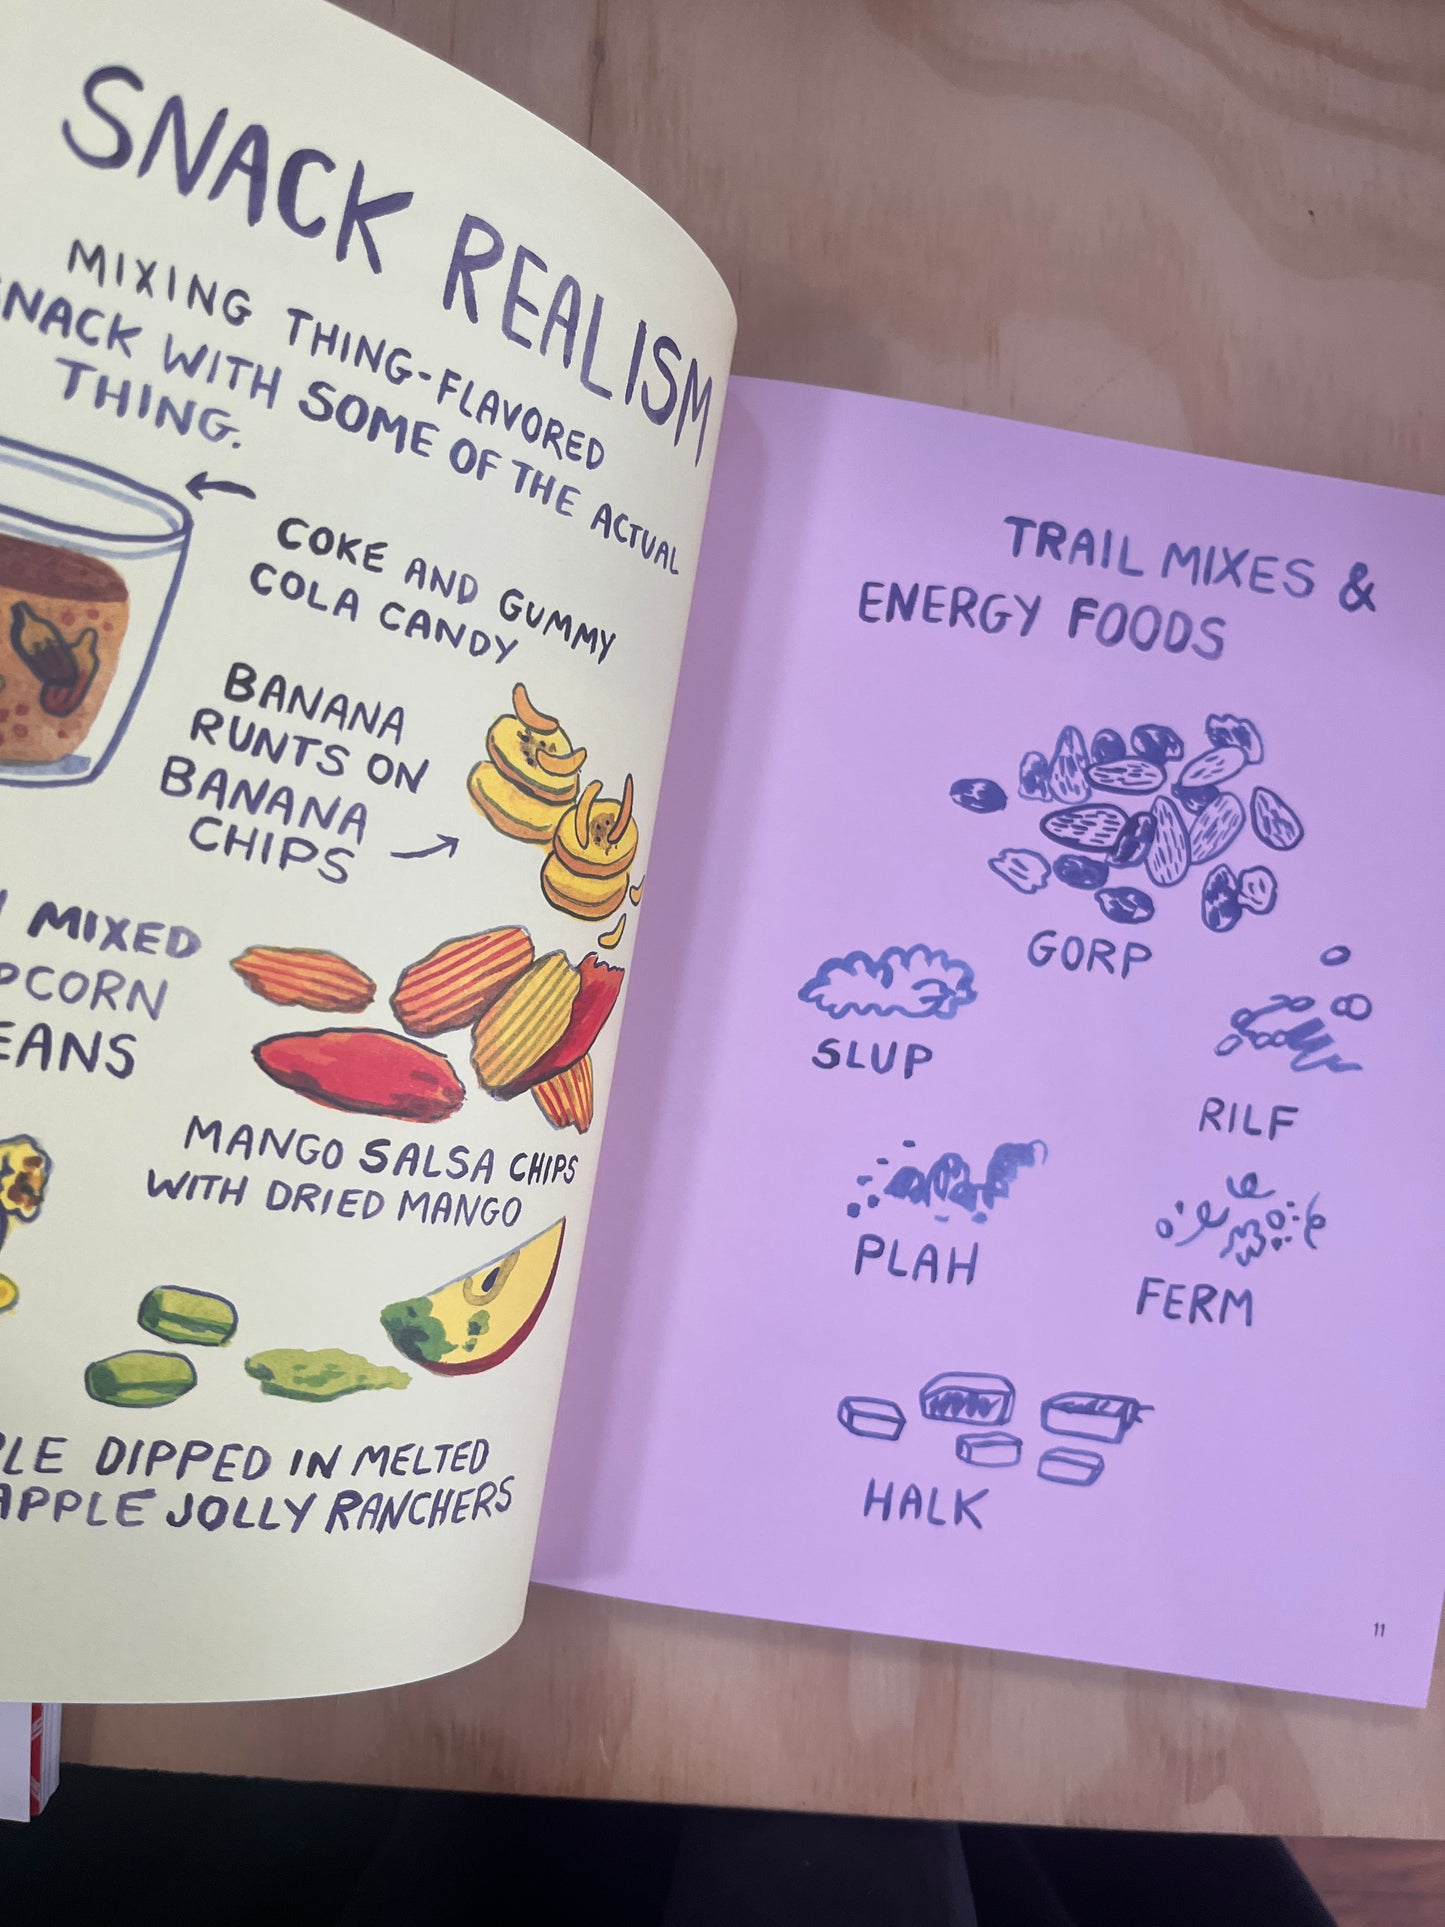 SNACK REALISM
MIXING THING-FLAVORED
SNACK WITH SOME OF THE ACTUAL
THING.
COKE AND GUMMY
COLA CANDY
BANANA
RUNTS ON
BANANA
CHIPS
MIXED
CORN
MANGO SALSA CHIPS
WITH DRIED MANGO
DIPPED IN MELTED
APPLE JOLLY RANCHERS
TRAIL MIXES &
ENERGY FOODS
GORP
SLUP
RILF
PLAH
FERM
HALK
11